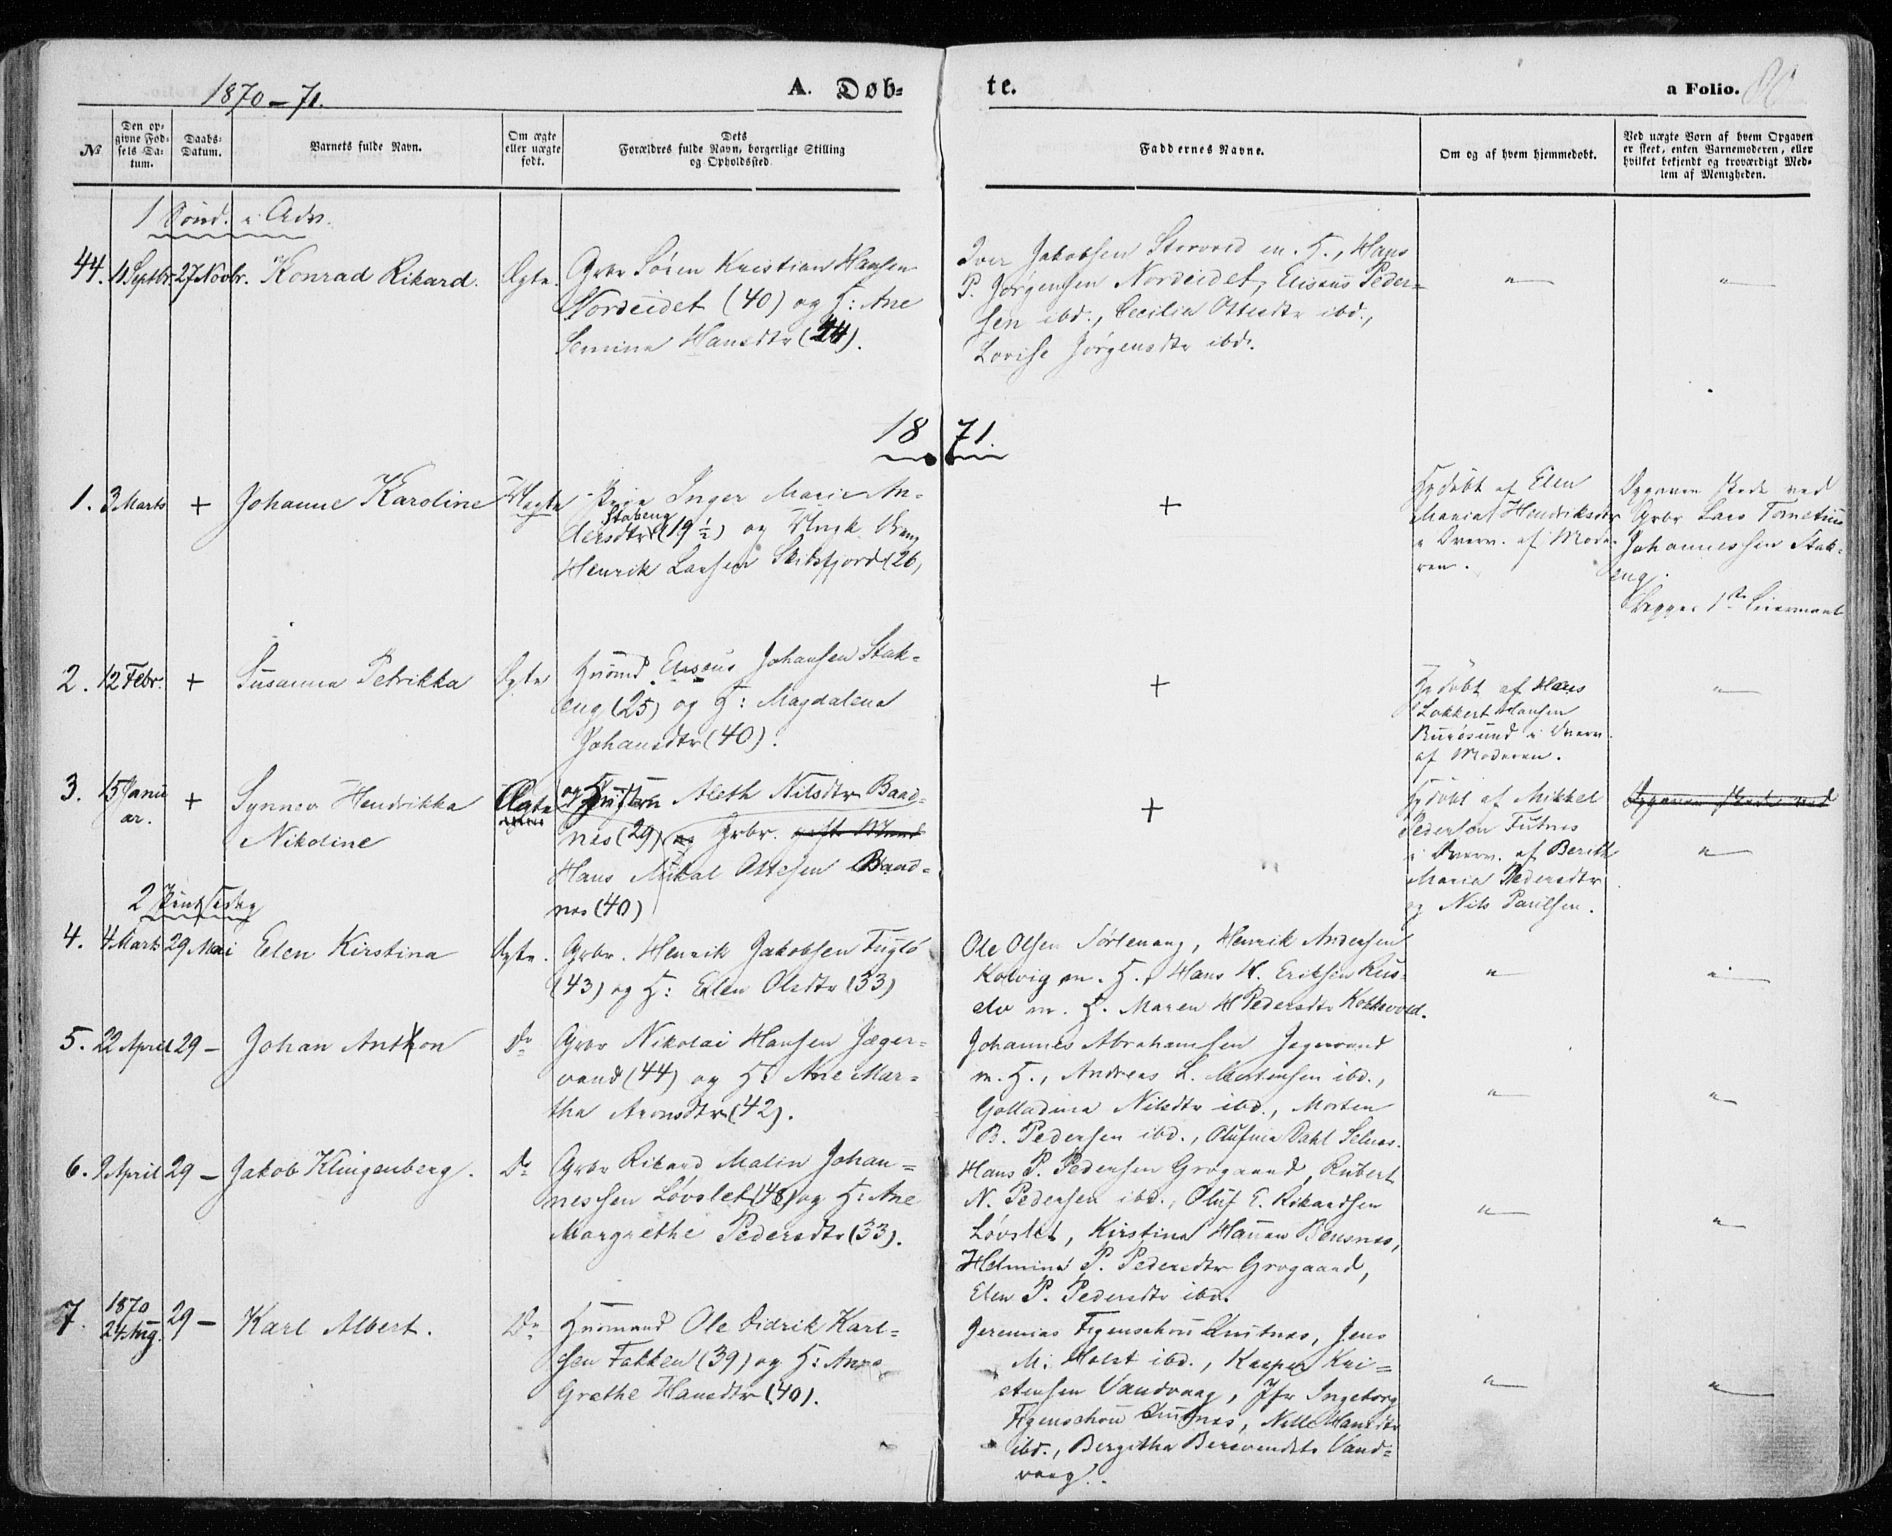 1870-71.
A. Døb-
te.
a Folio.
№
Den op-
givne Fød-
sels Da-
tum.
Daabs-
Datum.
Barnets fulde Navn.
Om ægte
eller uægte
født.
Dets
Forældres fulde Navn, borgerlige Stilling
og Opholdssted.
Faddernes Navne.
Om og af hvem hjemmedøbt.
Ved uægte Børn af hvem Opgaven
er skeet, enten Barnemoderen, eller
hvilket bekjendt og troværdigt Med-
lem af Menigheden.
1 Sønd. i Adv.
44.
11 Septbr.
27 Novbr.
Konrad Rikard.
Ægte.
Grbr Søren Kristian Hansen
Nordeidet (40) og H: Ane
Hansdtr (44).
Iver Jakobsen Storvord m. H., Hans
P. Jørgensen Nordeidet, Elisæus Peder-
sen ibd., Cecilia Ottesdtr ibd.,
Lovise Jørgensdtr ibd.
1871.
1.
3 Marts
+
Johanne Karoline
Uægte
Pige Inger Marie An-
Stakeng
dersdtr (19 ½) og Ungk.
Henrik Larsen Skibsfjord (26)
+
Hjdøbt af Elen
Maria Hendriksdtr
i Overv. af Mode-
ren.
Opgaven skede ved
Grbr Lars Tometius
Johannessen Stak-
eng.
Begges 1ste Leiermaal
2.
12 Febr.
+
Susanna Petrikka
Ægte
Husmd. Elisæus Johansen Stak-
eng (25) og H: Magdalena
Johansdtr (40).
+
Hjdøbt af Hans
Lokkert Hansen
i Overv.
af Moderen.
3.
15 Janu
ar.
+
Synnev Hendrikka
Nikoline
Ægte
og Hustru Aleth Nilsdtr Baad-
nes (29) og Grbr. gift Mand
Hans Mikal Ottesen Baad-
nes (40)
+
Hjdøbt af Mikkel
Pedersen Futnes
i Overv. af Berith
Maria Pedersdtr
og Nils Paulsen.
Opgaven skede ved
2 Pintsedag
4.
4 Marts
29 Mai
Elen Kirstina
Ægte.
Grbr. Henrik Jakobsen Fuglø
(43) og H: Elen Olsdtr (33)
Ole Olsen Sørlenang, Henrik Andersen
Kolvig m. H., Hans H. Eriksen Rus-
elv m. H. Maren H Pedersdtr
5.
22 April
29 -
Johan Anthon
Do
Grbr Nikolai Hansen Jæger-
vand (44) og H: Ane Mar-
tha Aronsdtr (42).
Johannes Abrahamsen Jegervand
m. H., Andreas L. Mortensen ibd.,
Golladina Nilsdtr ibd., Morten
B. Pedersen ibd., Olufine Dahl Selnes.
6.
9 April
29 -
Jakob Klingenberg.
Do
Grbr Rikard Malin Johan-
nessen Løvslet (48) og H: Ane
Margrethe Pedersdtr (33).
Hans P. Pedersen Grøgaard, Rubert
N. Pedersen ibd., Oluf E. Rikardsen
Løvslet, Kirstina Hansen Bensnes,
Helmina P. Pedersdtr Grøgaard,
Elen P. Pedersdtr ibd.
7.
1870
24 Aug.
29 -
Karl Albert.
Do
Husmand Ole Didrik Karl-
sen Fakken (39) og H: Ane
Grethe Hansdtr (40).
Jeremias Figenschou Skutnes, Jens
M. Holst ibd., Kasper Kri-
stensen Vandvaag, Jfr Ingeborg
Figenschou Skutnes, Nelle Hansdtr
ibd., Bergitha Berevendsdtr Vand-
vaag.